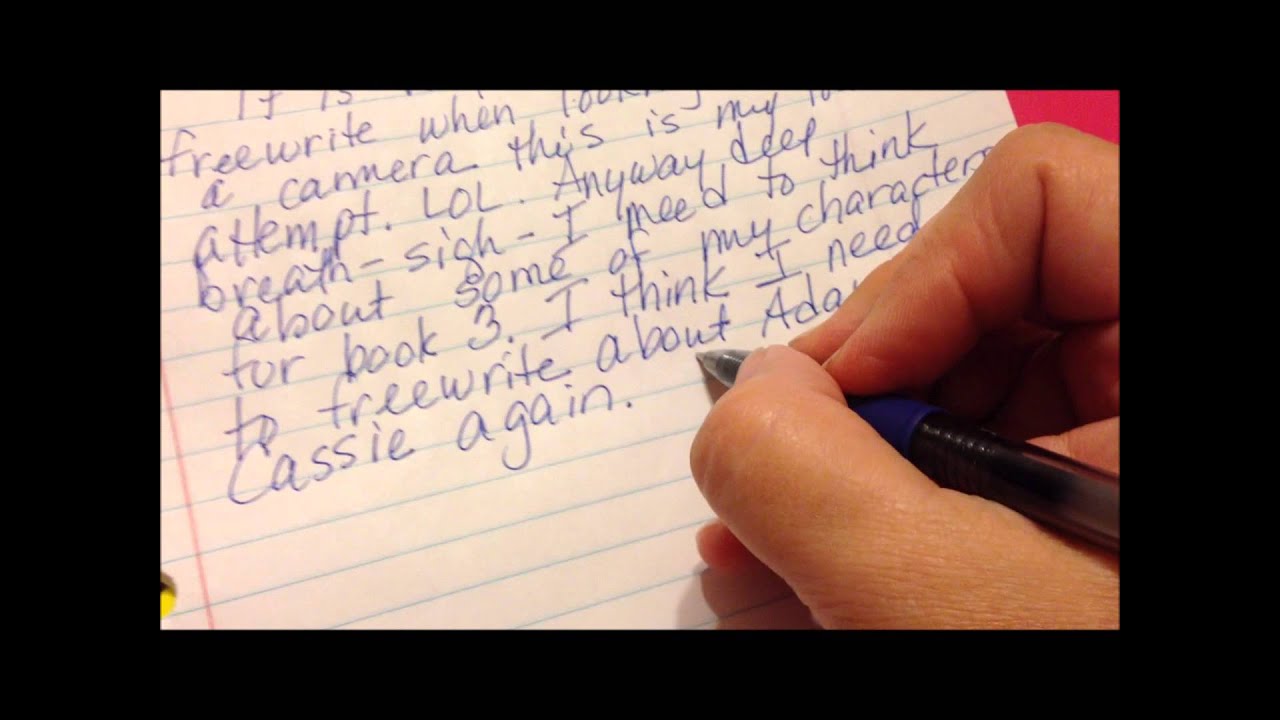 If is
freewrite when
a camera this is my
attempt. LOL. Anyway deep
breath - sigh - I need to think
about some of my characters
for book 3. I think I need
to freewrite about
Cassie again.